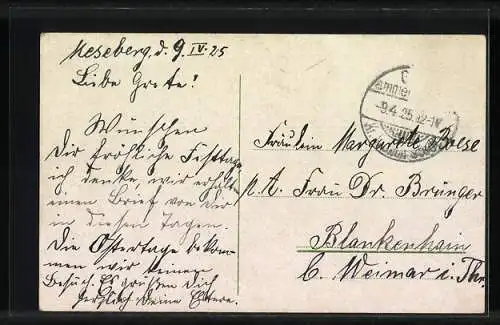 Meseberg, d. 9. IV. 25
Liebe Grete!
Wünschen
Dir fröhliche Festtage
ich denke, wir erhalt
einen Brief von Dir
in diesen Tagen.
Die Ostertage bekom-
men wir keinen
Besuch. Es grüßen Dich
herzlich Deine Eltern.
-9.4.25. 12-1N
Fräulein Margarete Boese
p. A. Frau Dr. Brünger
Blankenhain
b. Weimar i. Thr.